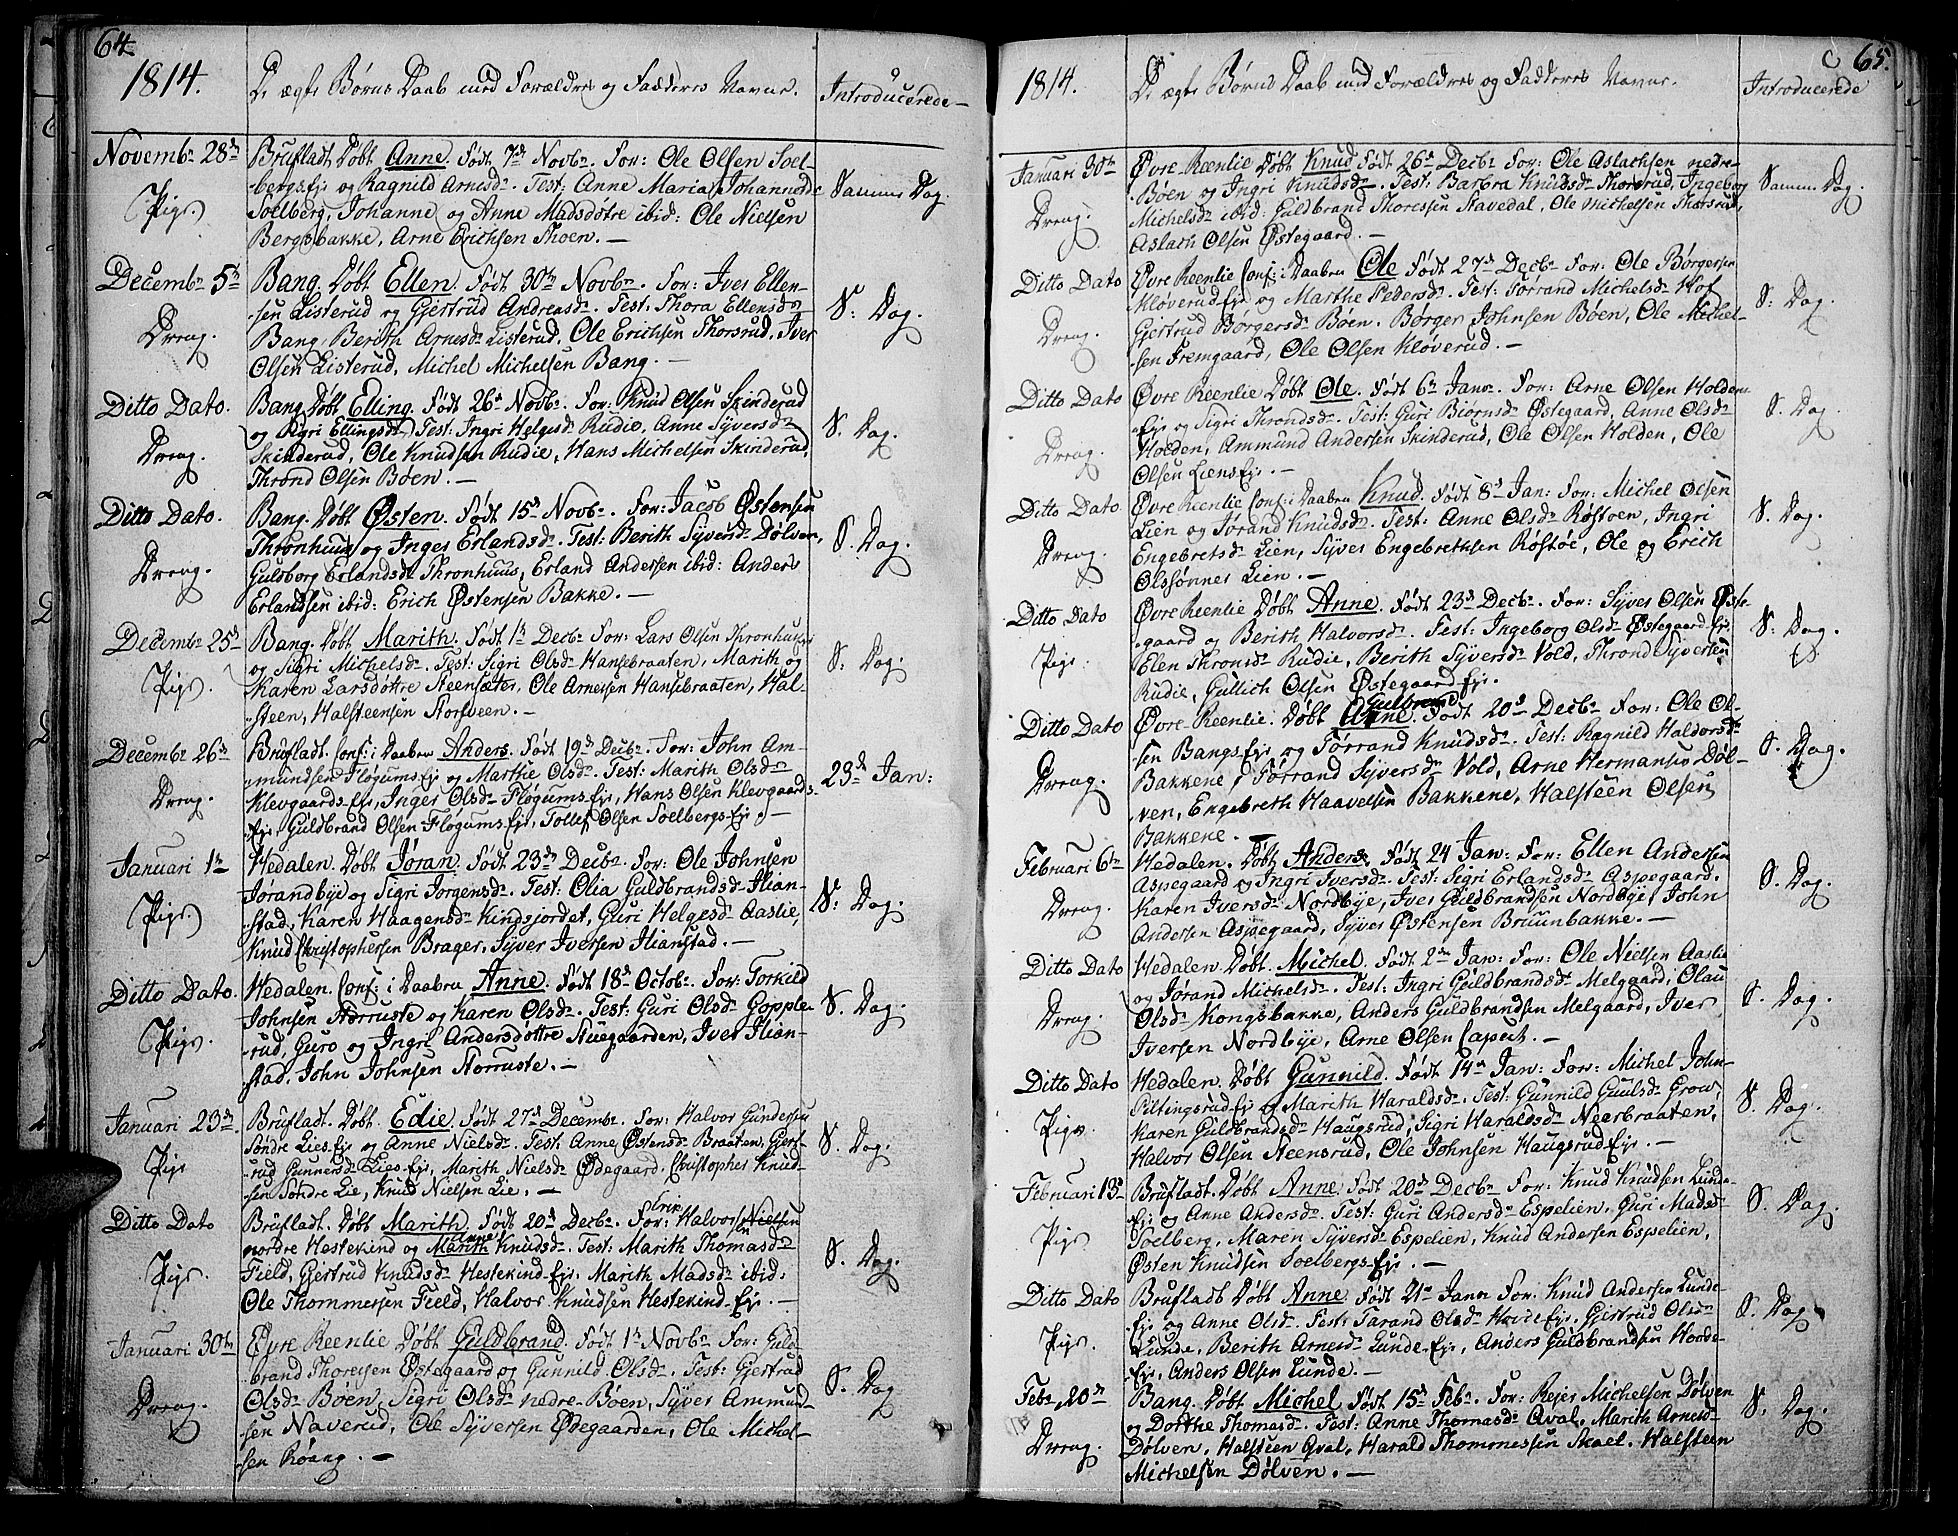 64.
1814.
De ægte Børns Daab med Forældres og Fadderes Navne.
Introducerede
Novembr 28de
Pige.
Brufladt. Døbt Anne. Født 7de Novbr. For: Ole Olsen Soel-
bergsEje og Ragnild Arnesdr. Test: Anne Maria Johannesdr
Solberg, Johanne og Anne Madsdøtre ibid: Ole Nielsen
Bergsbakke, Arne Erichsen Thoen. —
Samme Dag.
Decembr 5te
Dreng.
Bang. Døbt Ellen. Født 30te Novbr. For: Iver Ellen-
sen Listerud og Gjertrud Andreasdr. Test: Thora Ellensdr
Bang, Berith Arnesdr Listerud, Ole Erichsen Thorsrud, Iver
Olsen Listerud, Michel Michelsen Bang. —
S: Dag.
Ditto Dato.
Dreng.
Bang. Døbt Elling. Født 26de Novbr. For: Knud Olsen Skinderud
og Sigri Ellingsdr. Test: Ingri Helgesdr Rudie, Anne Syversdr
Skinderud, Ole Knudsen Rudie, Hans Michelsen Skinderud,
Thrond Olsen Bøen. —
S. Dag.
Ditto Dato.
Dreng.
Bang. Døbt Østen. Født 15de Novbr. For: Jacob Østensen
Thronhuus og Inger Erlandsdr. Test: Berith Syversdr Dølven,
Guldborg Erlandsdr Thronhuus, Erland Andersen ibid: Anders
Erlandsen ibid: Erich Østensen Bakke. —
S. Dag.
Decembr 25de
Pige.
Bang. Døbt Marith. Født 1te Decbr. For: Lars Olsen Thronhuus
og Sigri Michelsdr. Test: Sigri Olsdr Hansebraaten, Marith og
Karen Larsdøttre Steensæter, Ole Arnesen Hansebraaten, Hal-
steen, Halsteensen Storsveen. —
S: Dag.
Decembr 26de
Dreng.
Brufladt. Conf: i Daaben Anders. Født 19de Decbr. For: John Am-
mundsen FløgumsEje og Marthe Olsdr. Test: Marith Olsdr
Klevgaards-Eje, Inger Olsdr Fløgums-Eje, Hans Olsen Klevgaards-
Eje, Guldbrand Olsen FløgumsEje, Tollef Olsen SoelbergsEje. —
23de Jan:
Januari 1te
Pige.
Hedalen. Døbt Jøran. Født 23de Decbr. For: Ole Johnsen
Jørandbye og Sigri Jorgensdr. Test: Olia Guldbrandsdr Ilian-
stad, Karen Haagensdr Kindsjordet, Guri Helgesdr Aaslie,
Knud Christophersen Brager, Syver Iversen Ilianstad. —
S: Dag.
Ditto Dato.
Pige.
Hedalen. Conf: i Daaben Anne. Født 18de Octobr. For: Torkild
Johnsen Storruste og Karen Olsdr. Test: Guri Olsdr Gopple-
rud, Guro og Ingri Andersdøttre Stuegaarden, Iver Ilian-
stad, John Johnsen Storruste. —
S. Dag.
Januari 23de
Pige
Brufladt. Døbt. Edie. Født 27de Decembr. For: Halvor Gundersen
Søndre LiesEje og Anne Nielsdr. Test: Anne Østensdr Braaten, Gjert-
rud Gunnersdr LiesEje, Marith Nielsdr Ødegaard. Christopher Knud-
sen Søndre Lie, Knud Nielsen Lie. —
S. Dag.
Ditto Dato
Pige.
Brufladt. Døbt Marith. Født 20de Decbr. For: Halvor Nielsen
nordre Hestekind og Marith Anne Knudsdr. Test: Marith Thomasdr
Field, Gjertrud Knudsdr Hestekind-Eje. Marith Madsdr ibid.
Ole Thommesen Field, Halvor Knudsen Hestekind-Eje. —
S. Dag.
Januari 30te
Dreng.
Øvre Reenlie Døbt Guldbrand. Født 1te Novbr. For: Guld-
brand Thoresen Østegaard og Gunnild Olsdr. Test: Gjertrud
Olsdr Bøen, Sigri Olsdr nedre-Bøen, Syver Ammund-
sen Naverud, Ole Syversen Ødegaarden, Ole Michel-
sen Roang. —
S. Dag
C 65.
1814.
De ægte Børns Daab med Forældres og Fadderes Navne.
Introducerede
Januari 30te
Dreng.
Øvre Reenlie Døbt Knud. Født 26de Decbr. For: Ole Aslachsen nedre-
Bøen og Ingri Knudsdr. Test: Barbra Knudsdr Thorsrud, Ingeborg
Michelsdr ibid: Guldbrand Thoresen Stavedal, Ole Michelsen Thorsrud,
Aslach Olsen Østegaard. —
Samme Dag.
Ditto Dato
Dreng.
Øvre Reenlie Conf: i Daaben Ole Født 27de Decbr For: Ole Børgersen
KløverudEje og Marthe Pedersdr. Test: Torrand Michelsdr Hof
Gjertrud Børgersdr Bøen. Børger Johnsen Bøen, Ole Michel-
sen Fremgaard, Ole Olsen Kløverud. —
S: Dag.
Ditto Dato
Dreng.
Øvre Reenlie Døbt Ole. Født 6te Janr. For: Arne Olsen Holden
Eje og Sigri Throndsdr. Test: Guri Biørnsdr Østegaard, Anne Olsdr
Holden, Ammund Andersen Skinderud, Ole Olsen Holden, Ole
Olsen LiensEje. —
S. Dag.
Ditto Dato
Dreng.
Øvre Reenlie Conf: i Daaben Knud. Født 8de Jan: For: Michel Olsen
Lien og Jorand Knudsdr. Test: Anne Olsdr Røstoen, Ingri
Engebretsdr Lien, Syver Engebrethsen Røstøe, Ole og Erich
Olssønner Lien. —
S. Dag.
Ditto Dato
Pige.
Øvre Reenlie Døbt Anne. Født 23de Decbr. For: Syver Olsen Øste-
gaard og Berith Halvorsdr. Test: Ingeborg Olsdr Østegaard Eje.
Elen Thronsdr Rudie, Berith Syversdr Vold, Thrond Syversen
Rudie, Gullich Olsen Østegaard-Eje.
S: Dag.
Ditto Dato
Dreng.
Øvre Reenlie. Døbt Arne Gulbrand. Født 20de Decbr. For: Ole Ol-
sen BangsEje og Torrand Knudsdr. Test: Ragnild Haldorsdr
Bakkene, Torrand Syversdr Vold, Arne Hermansen Døl-
ven, Engebreth Haavelsen Bakkene, Halsteen Olsen
Bakkene. —
S. Dag.
Februari 6te
Dreng.
Hedalen. Døbt Anders. Født 24 Jan: For: Ellen Andersen
Aspegaard og Ingri Iversdr. Test: Sigri Erlandsdr Aspegaard.
Karen Iversdr Nordbye, Iver Guldbrandsen Nordbye, John
Andersen Aspegaard, Syver Østensen Bruunbakke. —
S. Dag.
Ditto Dato
Dreng.
Hedalen. Døbt. Michel. Født 2den Jan: For: Ole Nielsen Aaslie
og Jørand Michelsdr. Test: Ingri Guldbrandsdr Melgaard, Olau
Olsdr Kongsbakke, Anders Guldbrandsen Melgaard, Iver
Iversen Nordbye, Arne Olsen Capeit. —
S. Dag.
Ditto Dato
Pige.
Hedalen. Døbt Gunnild. Født 14de Jan: For: Michel John-
PiltingsrudEje og Marith Haraldsdr. Test: Gunnild Guulsdr Grow,
Karen Guldbrandsdr Haugsrud, Sigri Haraldsdr Neerbraaten,
Halvor Olsen Steensrud, Ole Johnsen HaugsrudEje. —
S. Dag.
Februari 13de
Pige.
Brufladt. Døbt Anne. Født 20de Decbr. For: Knud Knudsen Lunde-
Eje og Anne Andersdr. Test: Guri Andersdr Espelien, Guri Madsdr
Soelberg, Maren Syversdr Espelien, Knud Andersen Espelien,
Østen Knudsen Soelbergs-Eje. —
S. Dag.
Ditto Dato
Pige.
Brufladt Døbt Anne. Født 21de Janr For: Knud Andersen Lunde-
Eje og Anne Olsdr. Test: Tarand Olsdr HvideEje, Gjertrud Olsdr
Lunde, Berith Arnesdr Lunde-Eje, Anders Guldbrandsen Hvide-
Eje, Anders Olsen Lunde. —
S. Dag.
Febr. 20de
Dreng.
Bang. Døbt Michel Født 15de Febr. For: Rejer Michelsen Dølven
og Dorthe Thomasdr. Test: Anne Thomasdr Qval, Marith Arnesdr
Dølven, Halsteen Qval, Harald Thommessen Skoel. Halsteen
Michelsen Dølven. —
S. Dag.